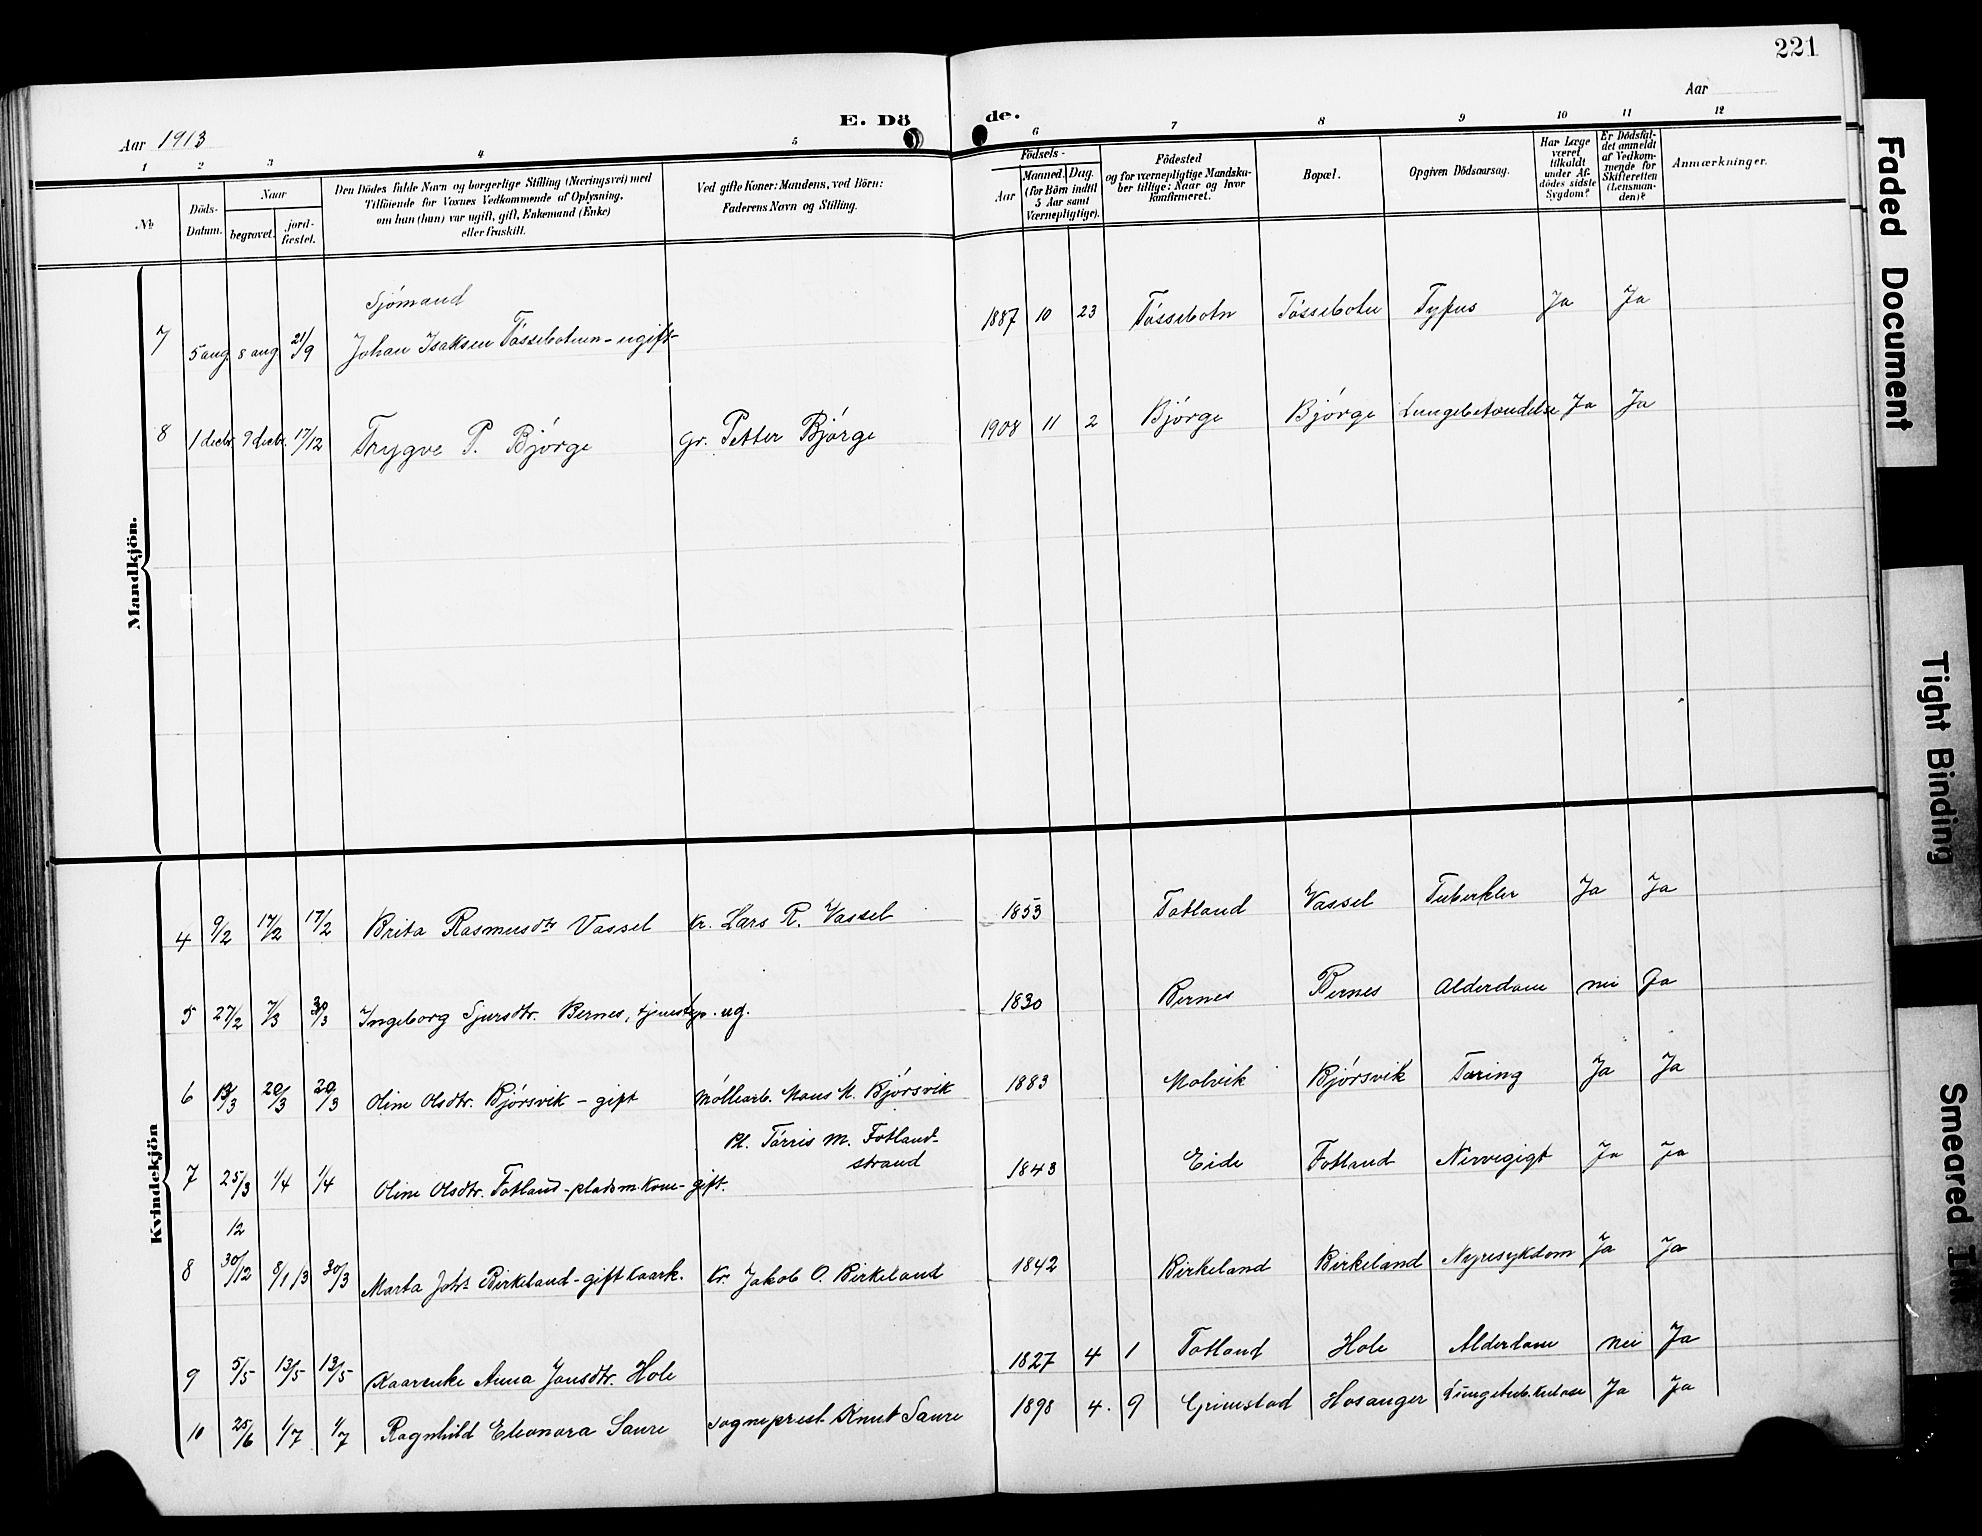 221
Aar
E. Dö de.
Aar 1913
1 2 3 4 5 6 7 8 9 10 11 12
No
Döds-Datum.
Naar
begravet.
jord-fæstet.
Den Dödes fulde Navn og borgerlige Stilling (Næringsvei) med
Tilföiende for Voxnes Vedkommende af Oplysning,
om han (hun) var ugift, gift, Enkemand (Enke)
eller fraskilt.
Ved gifte Koner: Mandens, ved Börn:
Faderens Navn og Stilling.
Födsels-
Aar
Maaned.
Dag.
(for Börn indtil
5 Aar samt
Værnepligtige).
Födested
og for værnepligtige Mandska-
ber tillige: Naar og hvor
konfirmeret.
Bopæl.
Opgiven Dödsaarsag.
Har Læge
været
tilkaldt
under Af-
dödes sidste
Sygdom?
Er Dödsfal-
det anmeldt
af Vedkom-
mende for
Skifteretten
(Lensman-
den)?
Anmærkninger.
Mandkjön.
Sjömand
7 5 aug. 8 aug 21/9 Johan Isaksen Tössebotnen - ugift - 1887 10 23 Tössebotn Tössebotn Tyfus Ja Ja
8 1 decbr. 9 decbr. 17/12 Trygve P. Bjørge Gr. Petter Bjørge 1908 11 2 Bjørge Bjørge Lungebetændelse Ja Ja
Kvindekjön
4 9/2 17/2 17/2 Brita Rasmusdtr Vassel Kr. Lars R. Vassel 1853 Fotland Vassel Tuberkler Ja Ja
5 27/2 7/3 30/3 Ingeborg Sjursdtr. Bernes, tjenstep. ug. 1830 Bernes Bernes Alderdom nei Ja
6 /3 20/3 20/3 Oline Olsdtr. Bjørsvik - gift Møllearb. Mons M. Bjørsvik 1883 Molvik Bjørsvik Tæring Ja Ja
Pl. Tørris M. Fotland-
strand
7 25/3 1/4 1/4 Oline Olsdtr. Fotland - pladsm.kone - gift. 1843 Eide Fotland Nervegigt Ja Ja
12
8 30/12 8/1 /3 30/3 Marta Johs Birkeland - gift kaark. Kr. Jakob O. Birkeland 1842 Birkeland Birkeland Nyresykdom Ja Ja
9 5/5 13/5 13/5 Kaarenke Anna Jonsdtr. Hole 1827 4 1 Fotland Hole Alderdom nei Ja
10 25/6 1/7 1/7 Ragnhild Eleonora Saure Sogneprest Knut Saure 1898 4. 9 Grimstad Hosanger Lungetuberkulose Ja Ja
Faded Document
Tight Binding
Smeared Ink